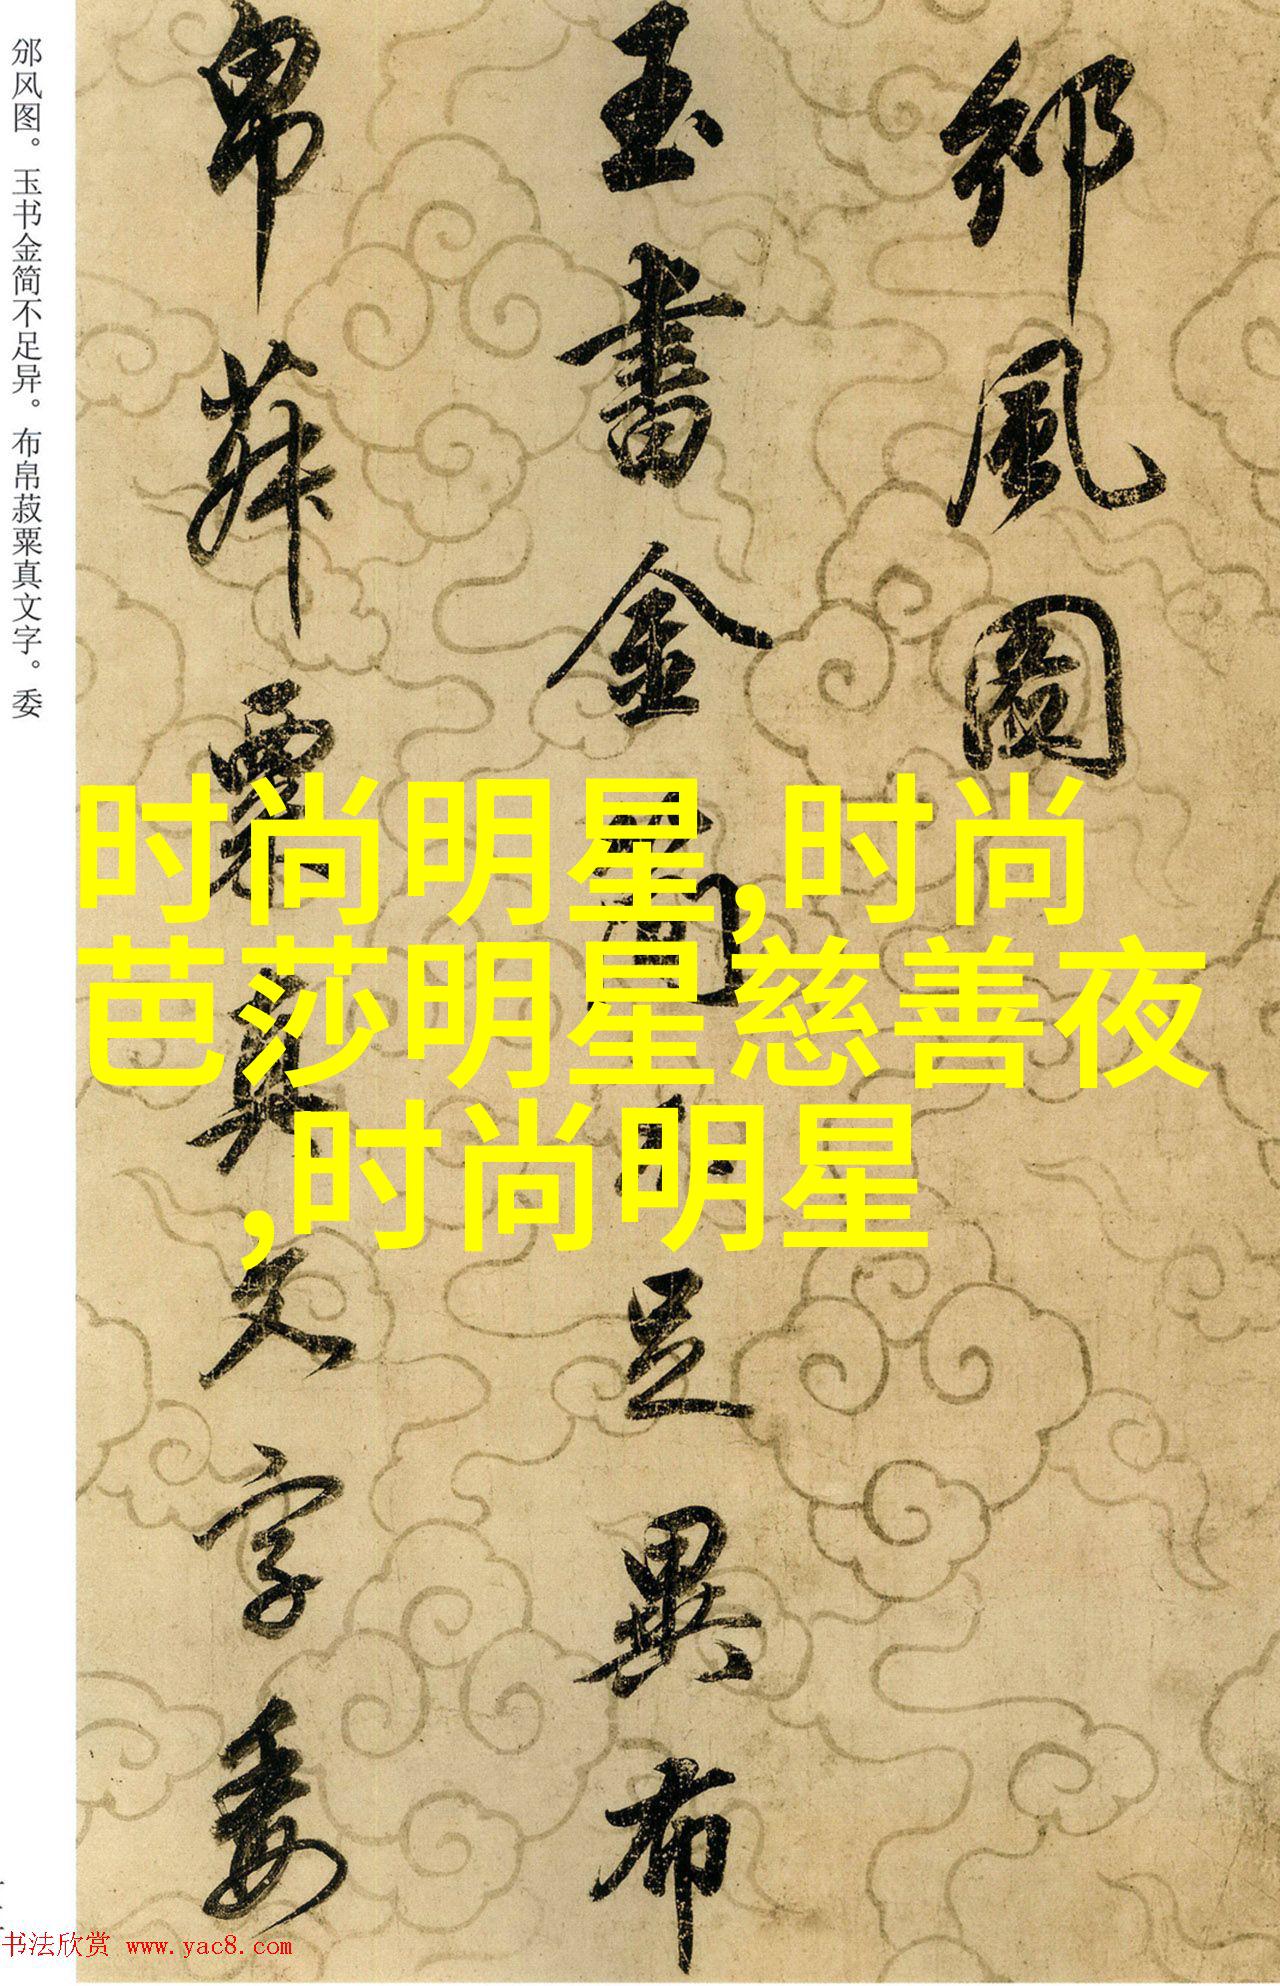 邠風圖
玉書金簡不足異布
帛菽粟真文字委
邠风图。玉书金简不足异。布帛菽粟真文字。委
时尚明星,时尚
芭莎明星慈善夜
,时尚明星
书法欣赏 www.yac8.com